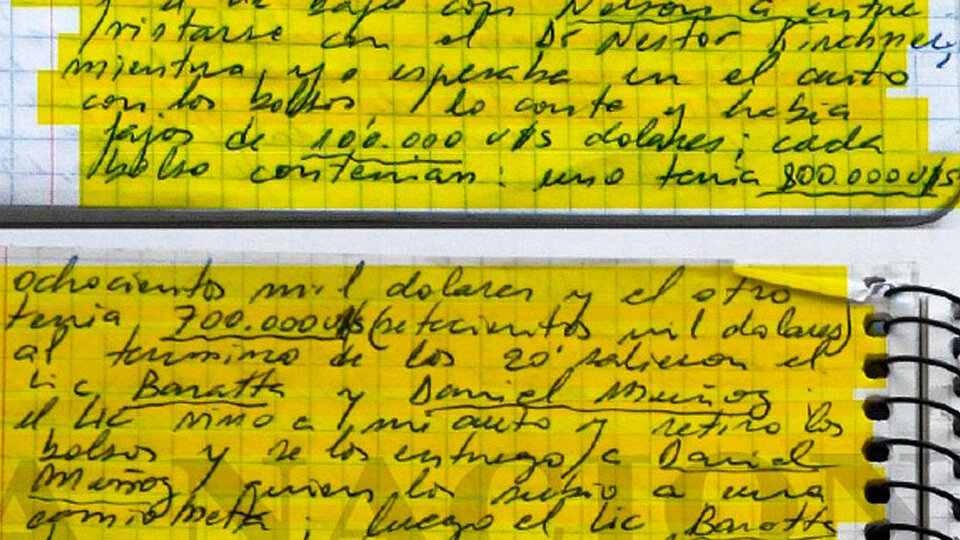 bajo con Nelson a entre
vistarse con el Dr Nestor Kirchner,
mientras, yo esperaba en el auto
con los bolsos, lo conte y habia
fajos de 100.000 u$s dolares; cada
bolso contenian: uno tenia 800.000 u$s
ochocientos mil dolares y el otro
tenia 700.000 u$s (setecientos mil dolares)
al termino de los 20' salieron el
Lic Baratta y Daniel Muñoz
el Lic vino a mi auto y retiro los
bolsos y se los entrego a Daniel
Muñoz, quien los subio a una
camioneta; luego el Lic Baratta
LA NACION